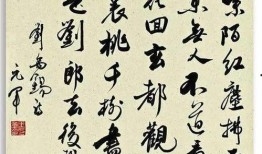 紫陌紅塵拂
來無人不道看
花回玄都觀
裏桃千樹盡
是劉郎去後栽
劉禹錫詩
元軍